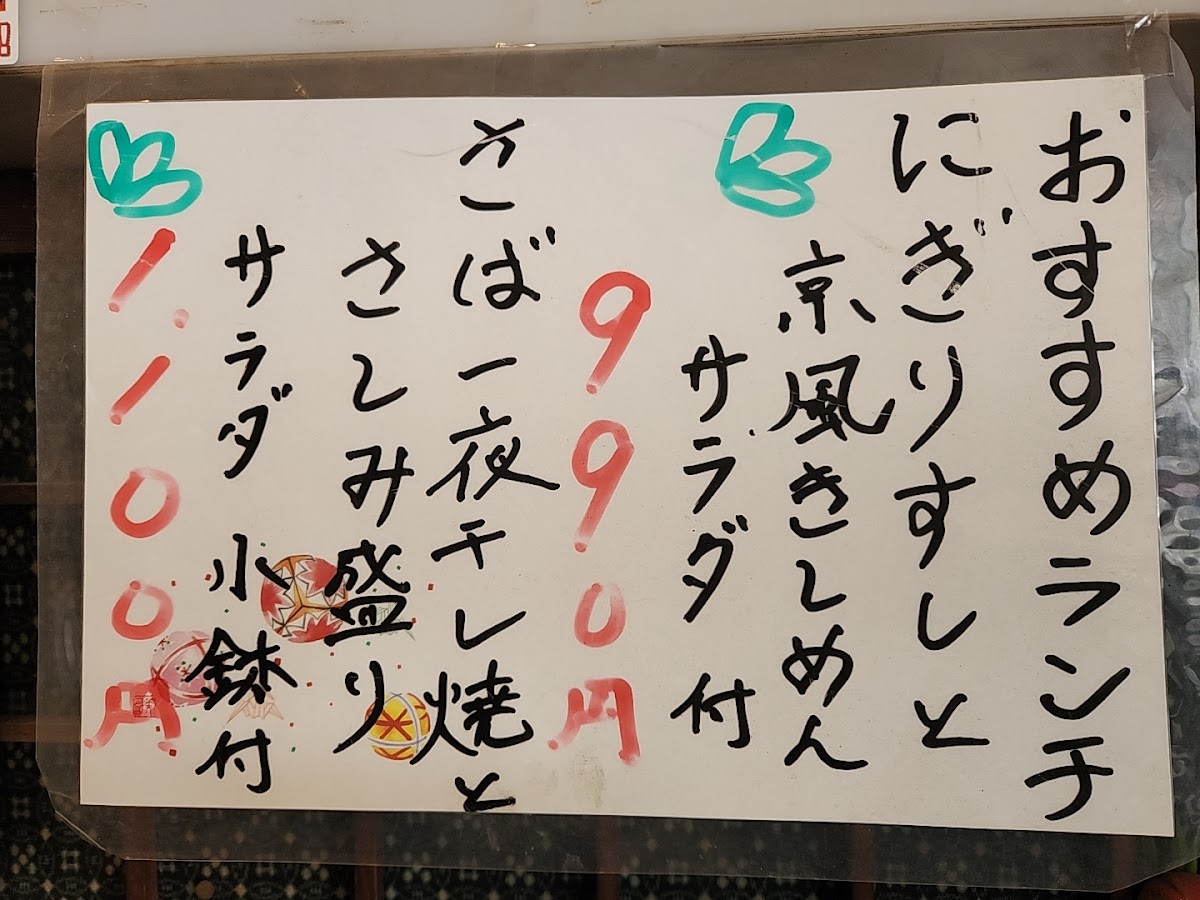 おすすめランチ
にぎりすしと
京風きしめん
サラダ付
990円
さば一夜干し焼と
さしみ盛り
サラダ 小鉢付
1.100円